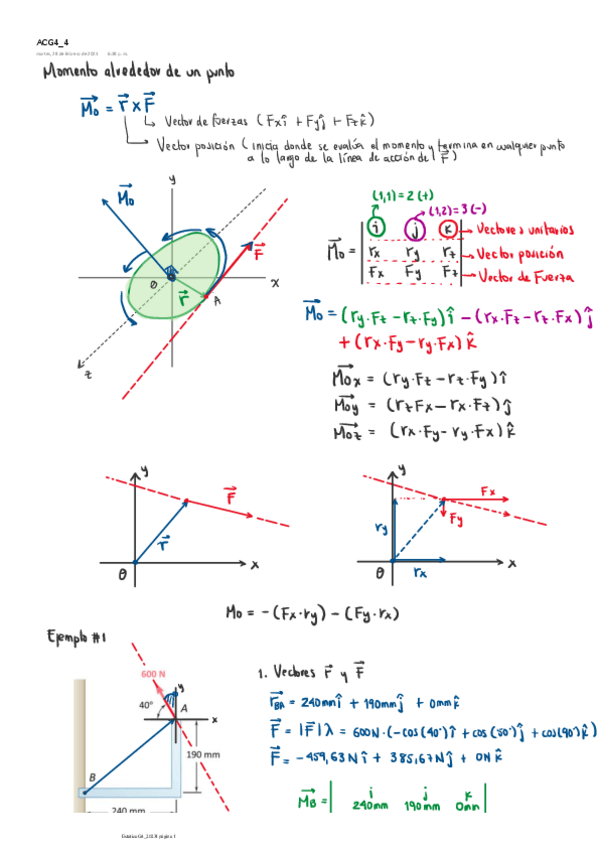 ACG4_4
Momento alrededor de un punto
M⃗o = r⃗ x F⃗
Vector de fuerzas (Fxî + Fyĵ + Fzk̂)
Vector posición (inicia donde se evalúa el momento y termina en cualquier punto
a lo largo de la línea de acción del F⃗)
y
M⃗o
F⃗
x
O
r⃗
A
z
(1,1) = 2 (+)
(1,2) = 3 (-)
i j k → Vectores unitarios
M⃗o = rx ry rz → Vector posición
Fx Fy Fz → Vector de Fuerza
M⃗o = (ry·Fz - rz·Fy)î - (rx·Fz - rz·Fx)ĵ
+ (rx·Fy - ry·Fx)k̂
M⃗ox = (ry·Fz - rz·Fy)î
M⃗oy = (rzFx - rx·Fz)ĵ
M⃗oz = (rx·Fy - ry·Fx)k̂
y
F⃗
r⃗
x
O
y
Fx
Fy
ry
x
O
rx
Mo = -(Fx·ry) - (Fy·rx)
Ejemplo #1
600 N
y
40°
A
x
190 mm
B
240 mm
1. Vectores r⃗ y F⃗
r⃗BA = 240mmî + 190mmĵ + 0mmk̂
F⃗ = |F⃗|λ = 600N·(-cos(40°)î + cos(50°)ĵ + cos(90°)k̂)
F⃗ = -459,63Nî + 385,67Nĵ + 0Nk̂
M⃗B = i j k
240mm 190mm 0mm